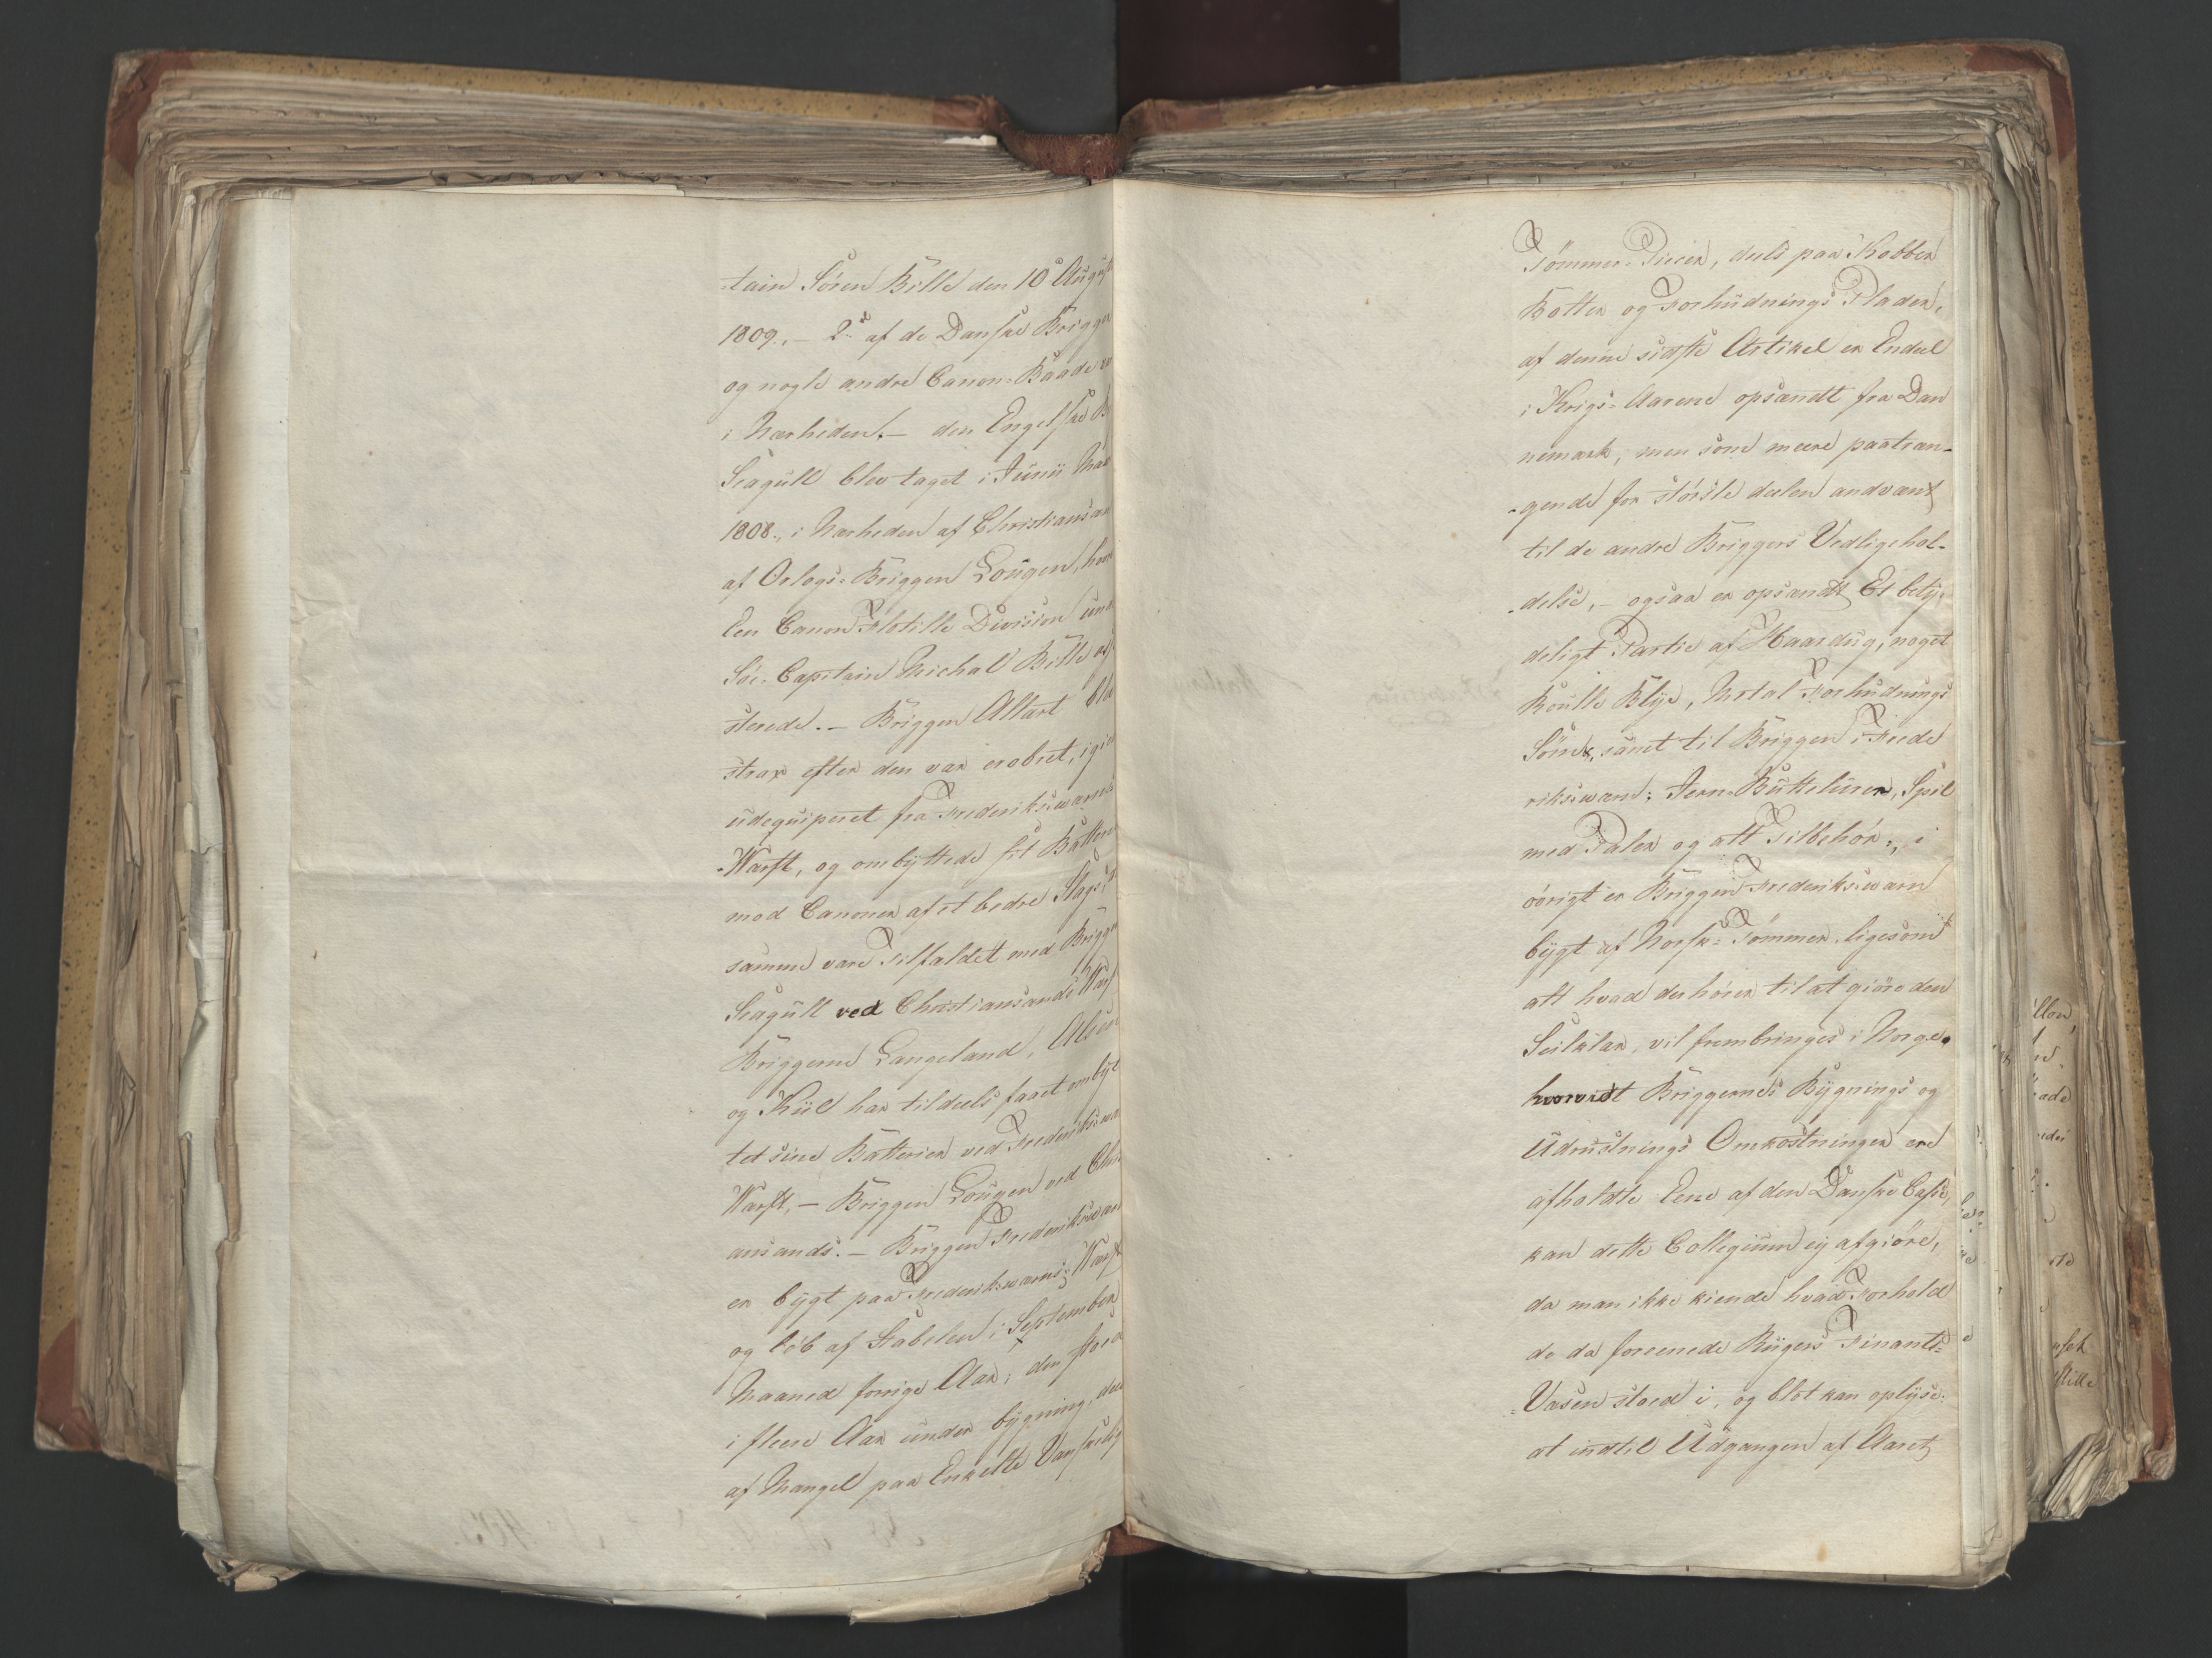 -tain Sören Bille den 10de August
1809, – 2de af de Danske Brigger
og nogle andre Canon-Baade
i Nærheden. – den Engelske
Seagull blev taget i Junii Maa
1808., i Nærheden af Christiansan
af Orlogs-Briggen Lougen, hvor
Een Canon Flotille Division un
Söe-Capitain Michal Bille as
sterede. – Briggen Allart ble
strax efter den var erobret, igie
udequiperet fra Frederiksværns
Værft, og ombyttede sit Batteri
mod Canoner af et bedre Slags,
samme vare Tilfældet med Brigge
Seagull ved Christiansands Værf
Briggerne Langeland, Alsen
og Kiil har tildeels faaet ombyt
tet sine Batterier ved Frederiksvæ
Værft, – Briggen Lougen ved Chri
ansands. – Briggen Frederiksværn
er bÿgt paa Frederiksværns Værft
og löb af Stabelen i September
Maaned forrige Aar, den stoed
i fleere Aar under bÿgning, dee
af Mangel paa Enkelte Vanskelig
Tömmer-Piecer, deels paa Kobber
Bolter og Forhudnings Plader,
af denne sidste Artikel er Endeel
i Krigs-Aarene opsændt fra Dan
nemark, men som meere paatræn-
-gende for störste deelen andvent
til de andre Briggers Vedligehol-
-delse, – ogsaa er opsændt Et betÿ-
deligt Partie af Haardug, noget
Roulle Blÿe, Metal Forhudnings
Söm, samt til Briggen Frede
riksværn: Jern-Bütteluver, Spil
med Paler og alt Tilbehör:, i
övrigt er Briggen Frederiksværn
bÿgt af Norsk-Tömmer, ligesom
alt hvad der hörer til at giöre den
Seilklar, vil frembringes i Norge.
hvorvidt Briggernes Bÿgnings og
Udrustnings Omkostninger ere
afholdte Eene af den Danske Casse,
kan dette Collegium eÿ afgiöre,
da man ikke kiende hvad Forhold
de da foreenede Rigers Finants-
-Væsen stoed i, og blot kan oplÿse:
at indtil Udgangen af Aaret